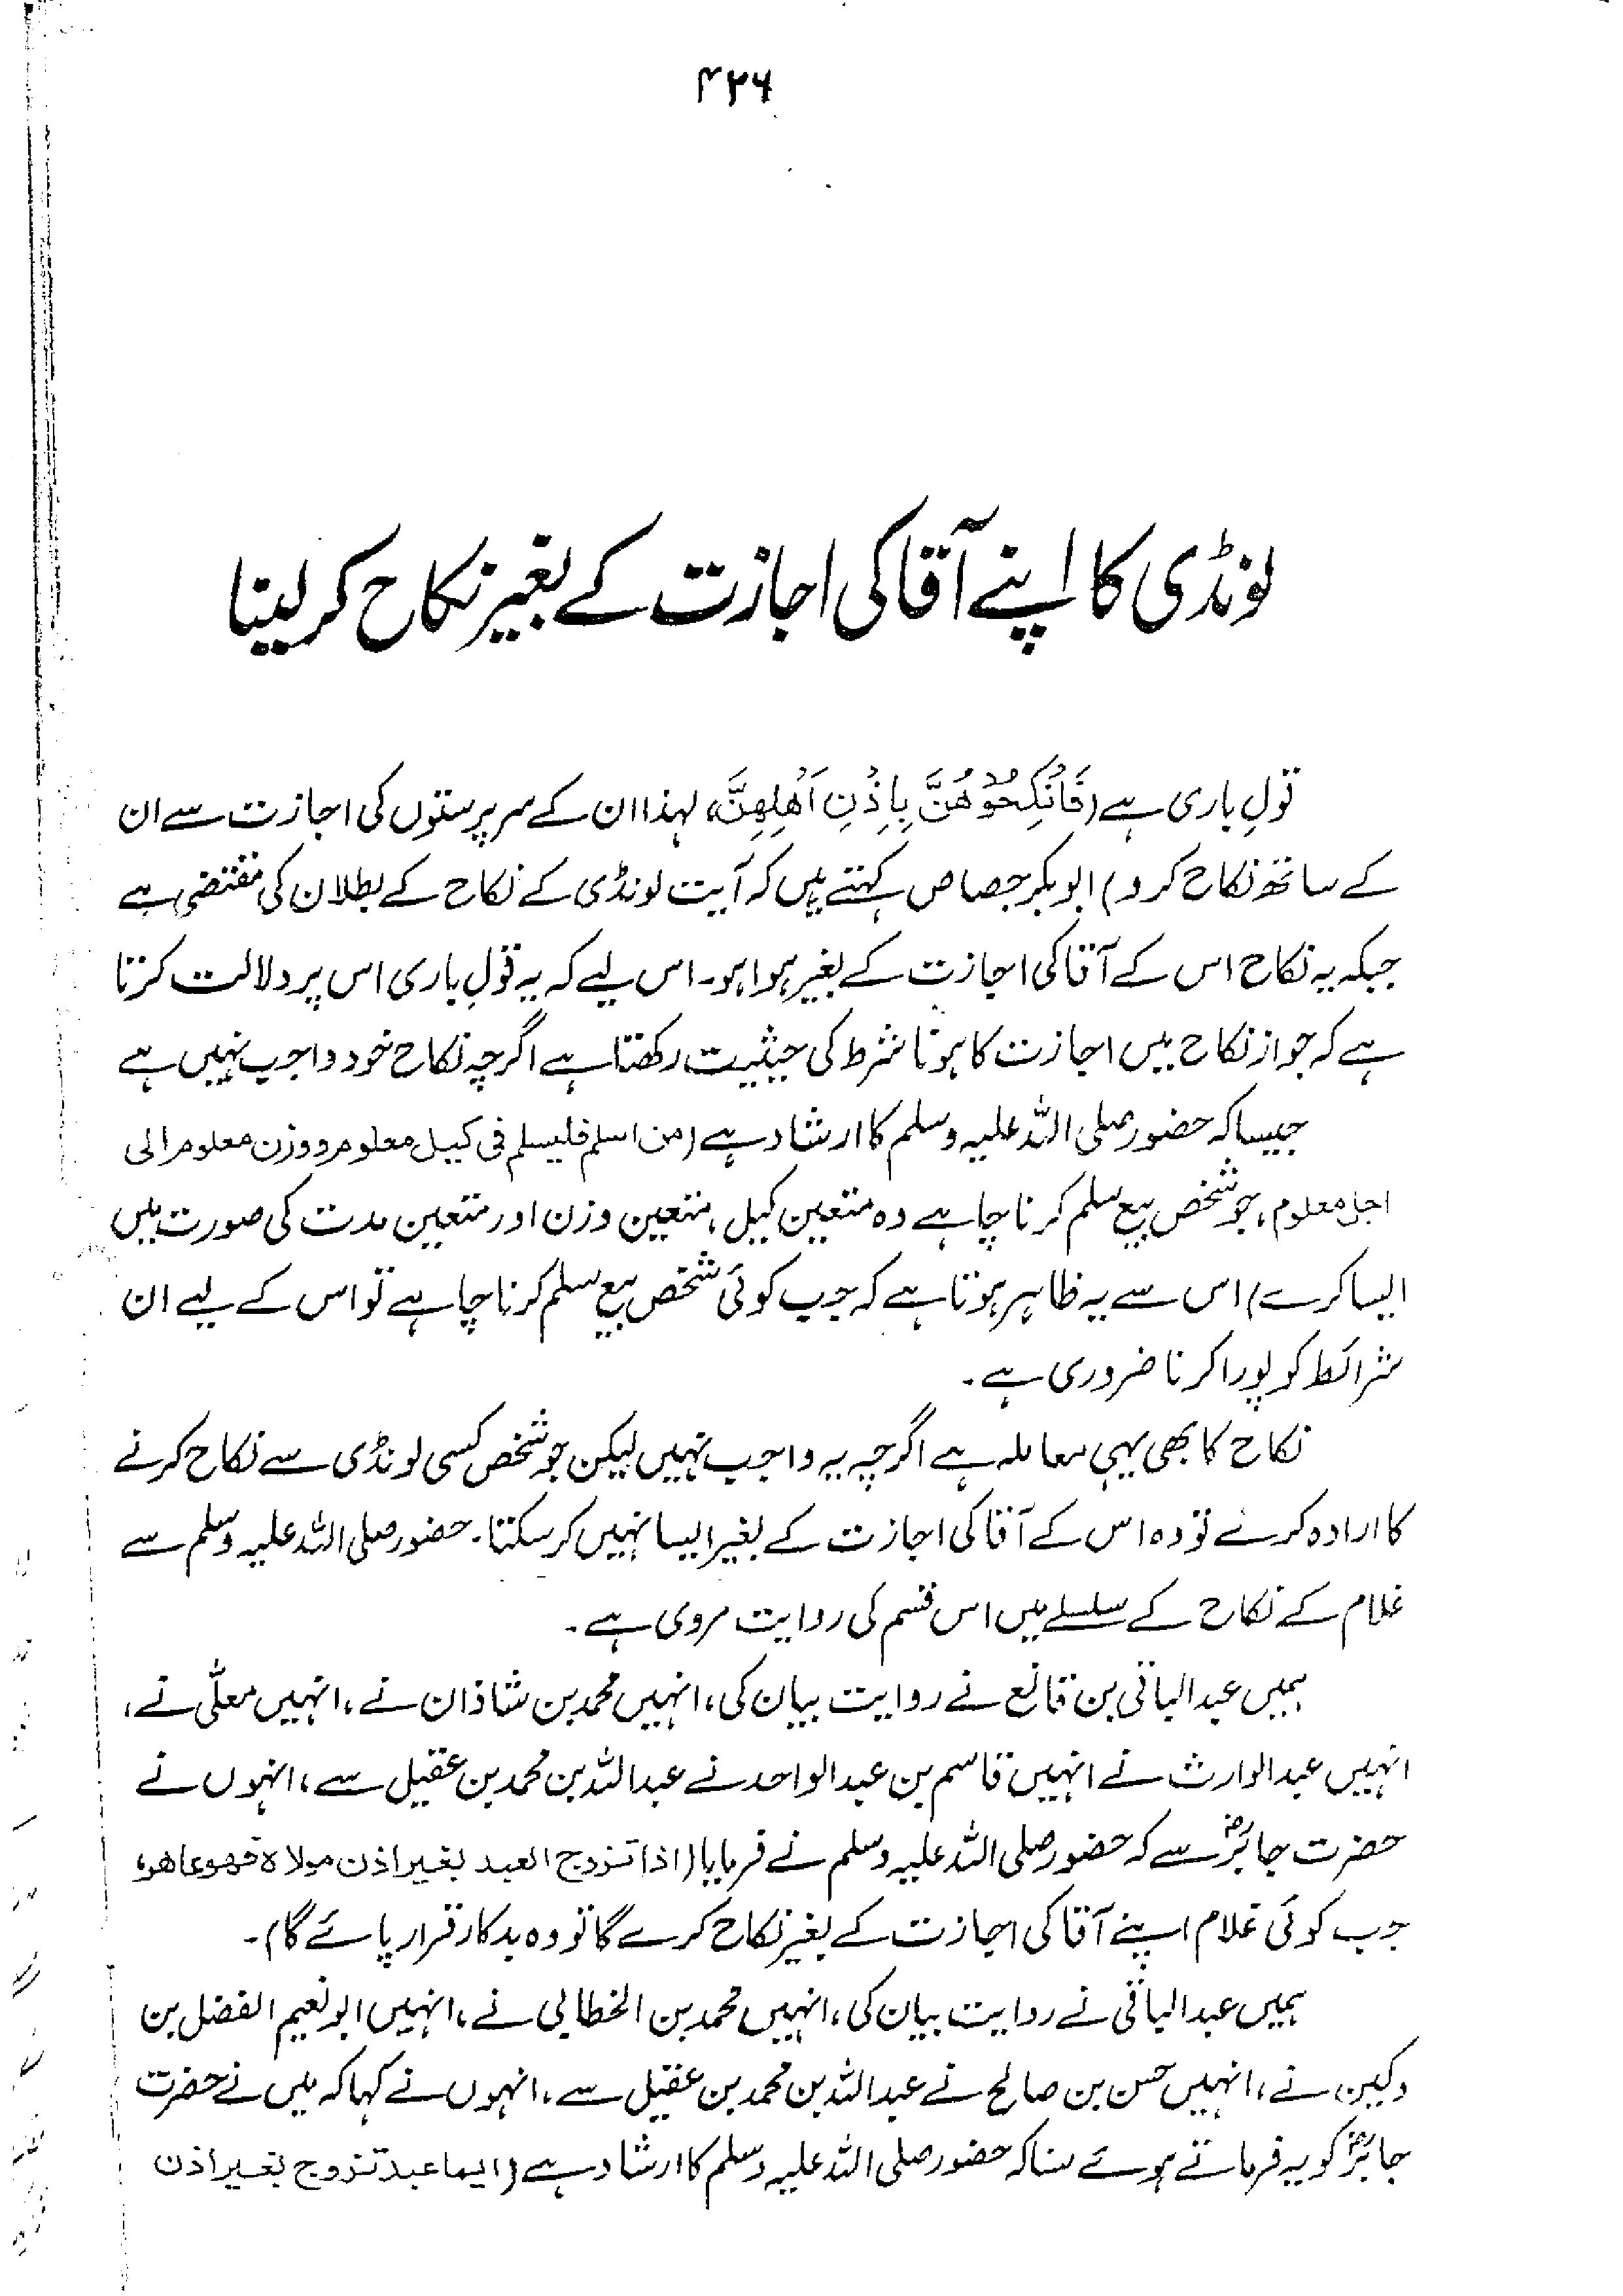 ۴۲۶
لونڈی کا اپنے آقا کی اجازت کے بغیر نکاح کر لینا
قولِ باری ہے (فَانْکِحُوْھُنَّ بِاِذْنِ اَھْلِھِنَّ، لہذا ان کے سرپرستوں کی اجازت سے ان
کے ساتھ نکاح کرو) ابوبکر جصاص کہتے ہیں کہ آیت لونڈی کے نکاح کے بطلان کی مقتضی ہے
جبکہ یہ نکاح اس کے آقا کی اجازت کے بغیر ہوا ہو۔ اس لیے کہ یہ قولِ باری اس پر دلالت کرتا
ہے کہ جواز نکاح میں اجازت کا ہونا شرط کی حیثیت رکھتا ہے اگرچہ نکاح خود واجب نہیں ہے
جیسا کہ حضور صلی اللہ علیہ وسلم کا ارشاد ہے (من اسلم فلیسلم فی کیل معلوم ووزن معلوم الی
اجل معلوم، جو شخص بیع سلم کرنا چاہے وہ متعین کیل، متعین وزن اور متعین مدت کی صورت میں
ایسا کرے) اس سے یہ ظاہر ہوتا ہے کہ جب کوئی شخص بیع سلم کرنا چاہے تو اس کے لیے ان
شرائط کو پورا کرنا ضروری ہے۔
نکاح کا بھی یہی معاملہ ہے اگرچہ یہ واجب نہیں لیکن جو شخص کسی لونڈی سے نکاح کرنے
کا ارادہ کرے تو وہ اس کے آقا کی اجازت کے بغیر ایسا نہیں کر سکتا۔ حضور صلی اللہ علیہ وسلم سے
غلام کے نکاح کے سلسلے میں اس قسم کی روایت مروی ہے۔
ہمیں عبدالباقی بن قانع نے روایت بیان کی، انہیں محمد بن شاذان نے، انہیں معلّٰی نے،
انہیں عبدالوارث نے انہیں قاسم بن عبدالواحد نے عبداللہ بن محمد بن عقیل سے، انہوں نے
حضرت جابرؓ سے کہ حضور صلی اللہ علیہ وسلم نے فرمایا (اذا تزوج العبد بغیر اذن مولاہ فھو عاھر،
جب کوئی غلام اپنے آقا کی اجازت کے بغیر نکاح کرے گا تو وہ بدکار قرار پائے گا)۔
ہمیں عبدالباقی نے روایت بیان کی، انہیں محمد بن الخطابی نے، انہیں ابونعیم الفضل بن
دکین نے، انہیں حسن بن صالح نے عبداللہ بن محمد بن عقیل سے، انہوں نے کہا کہ میں نے حضرت
جابرؓ کو یہ فرماتے ہوئے سنا کہ حضور صلی اللہ علیہ وسلم کا ارشاد ہے (ایما عبد تزوج بغیر اذن